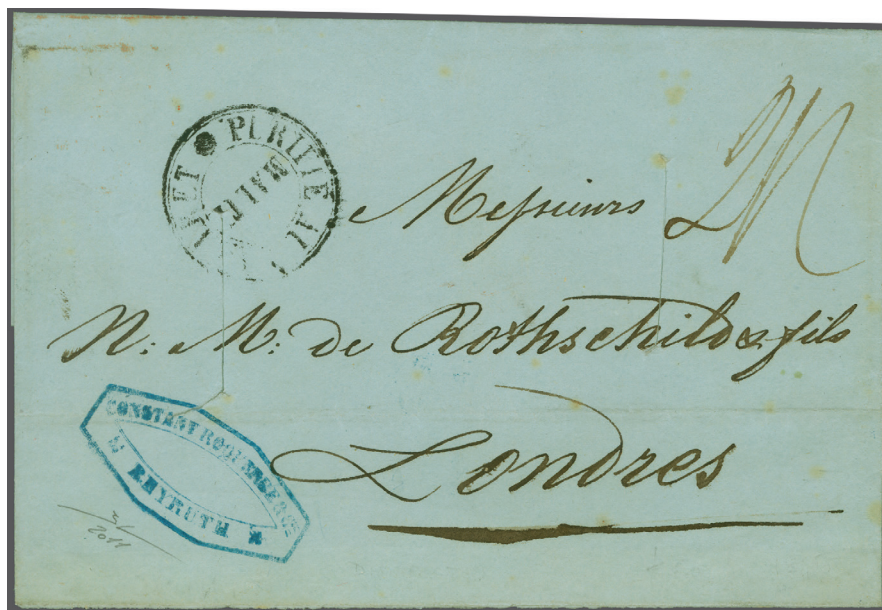 PURIFIÉ AU LAZARET
MALTE
Messieurs
N: M: de Rothschild & fils
Londres
CONSTANT
BEYRUTH
2011